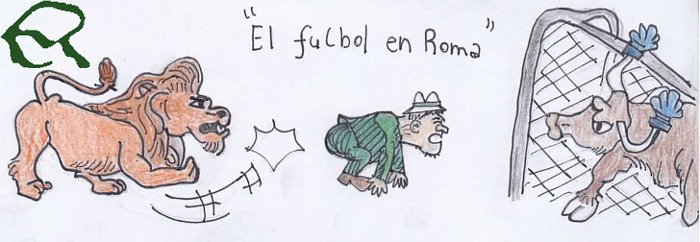 "El fulbol en Roma"